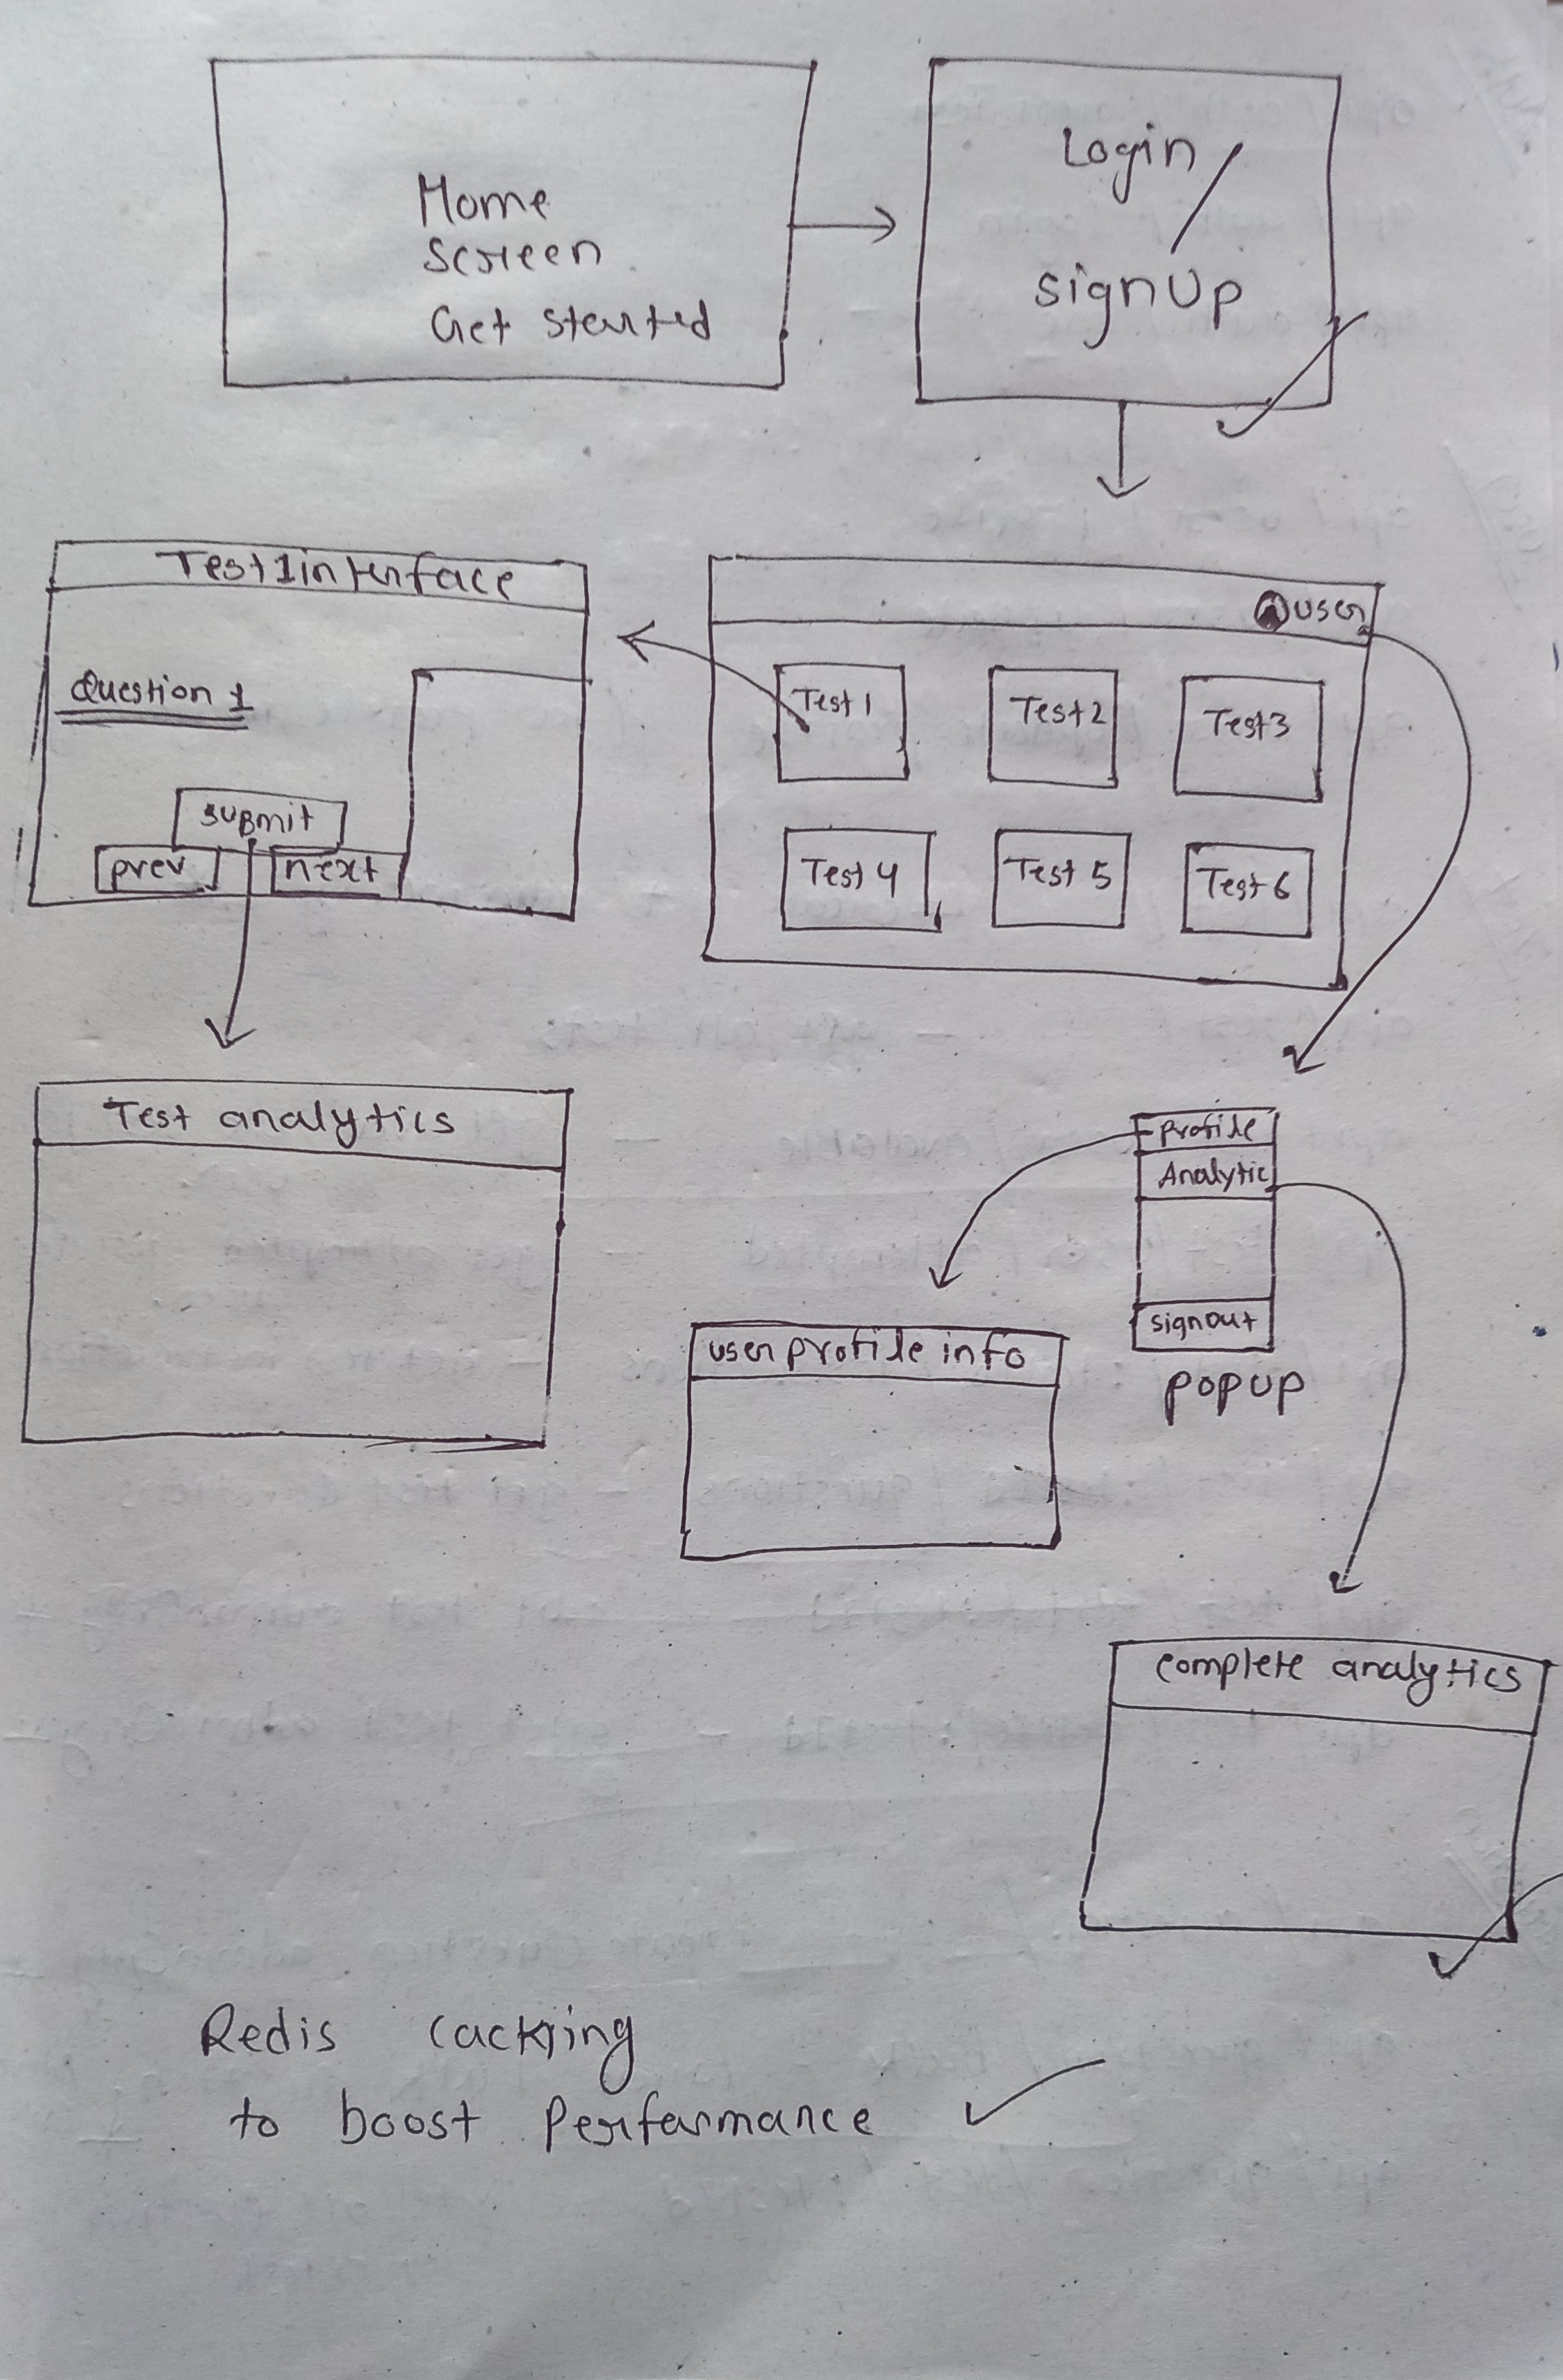 Home
Screen
Get started
Login /
signUp
Test1interface
Question 1
submit
prev
next
user
Test1
Test2
Test3
Test4
Test 5
Test6
Test analytics
profile
Analytic
signout
popup
user profile info
complete analytics
Redis cacking
to boost Performance